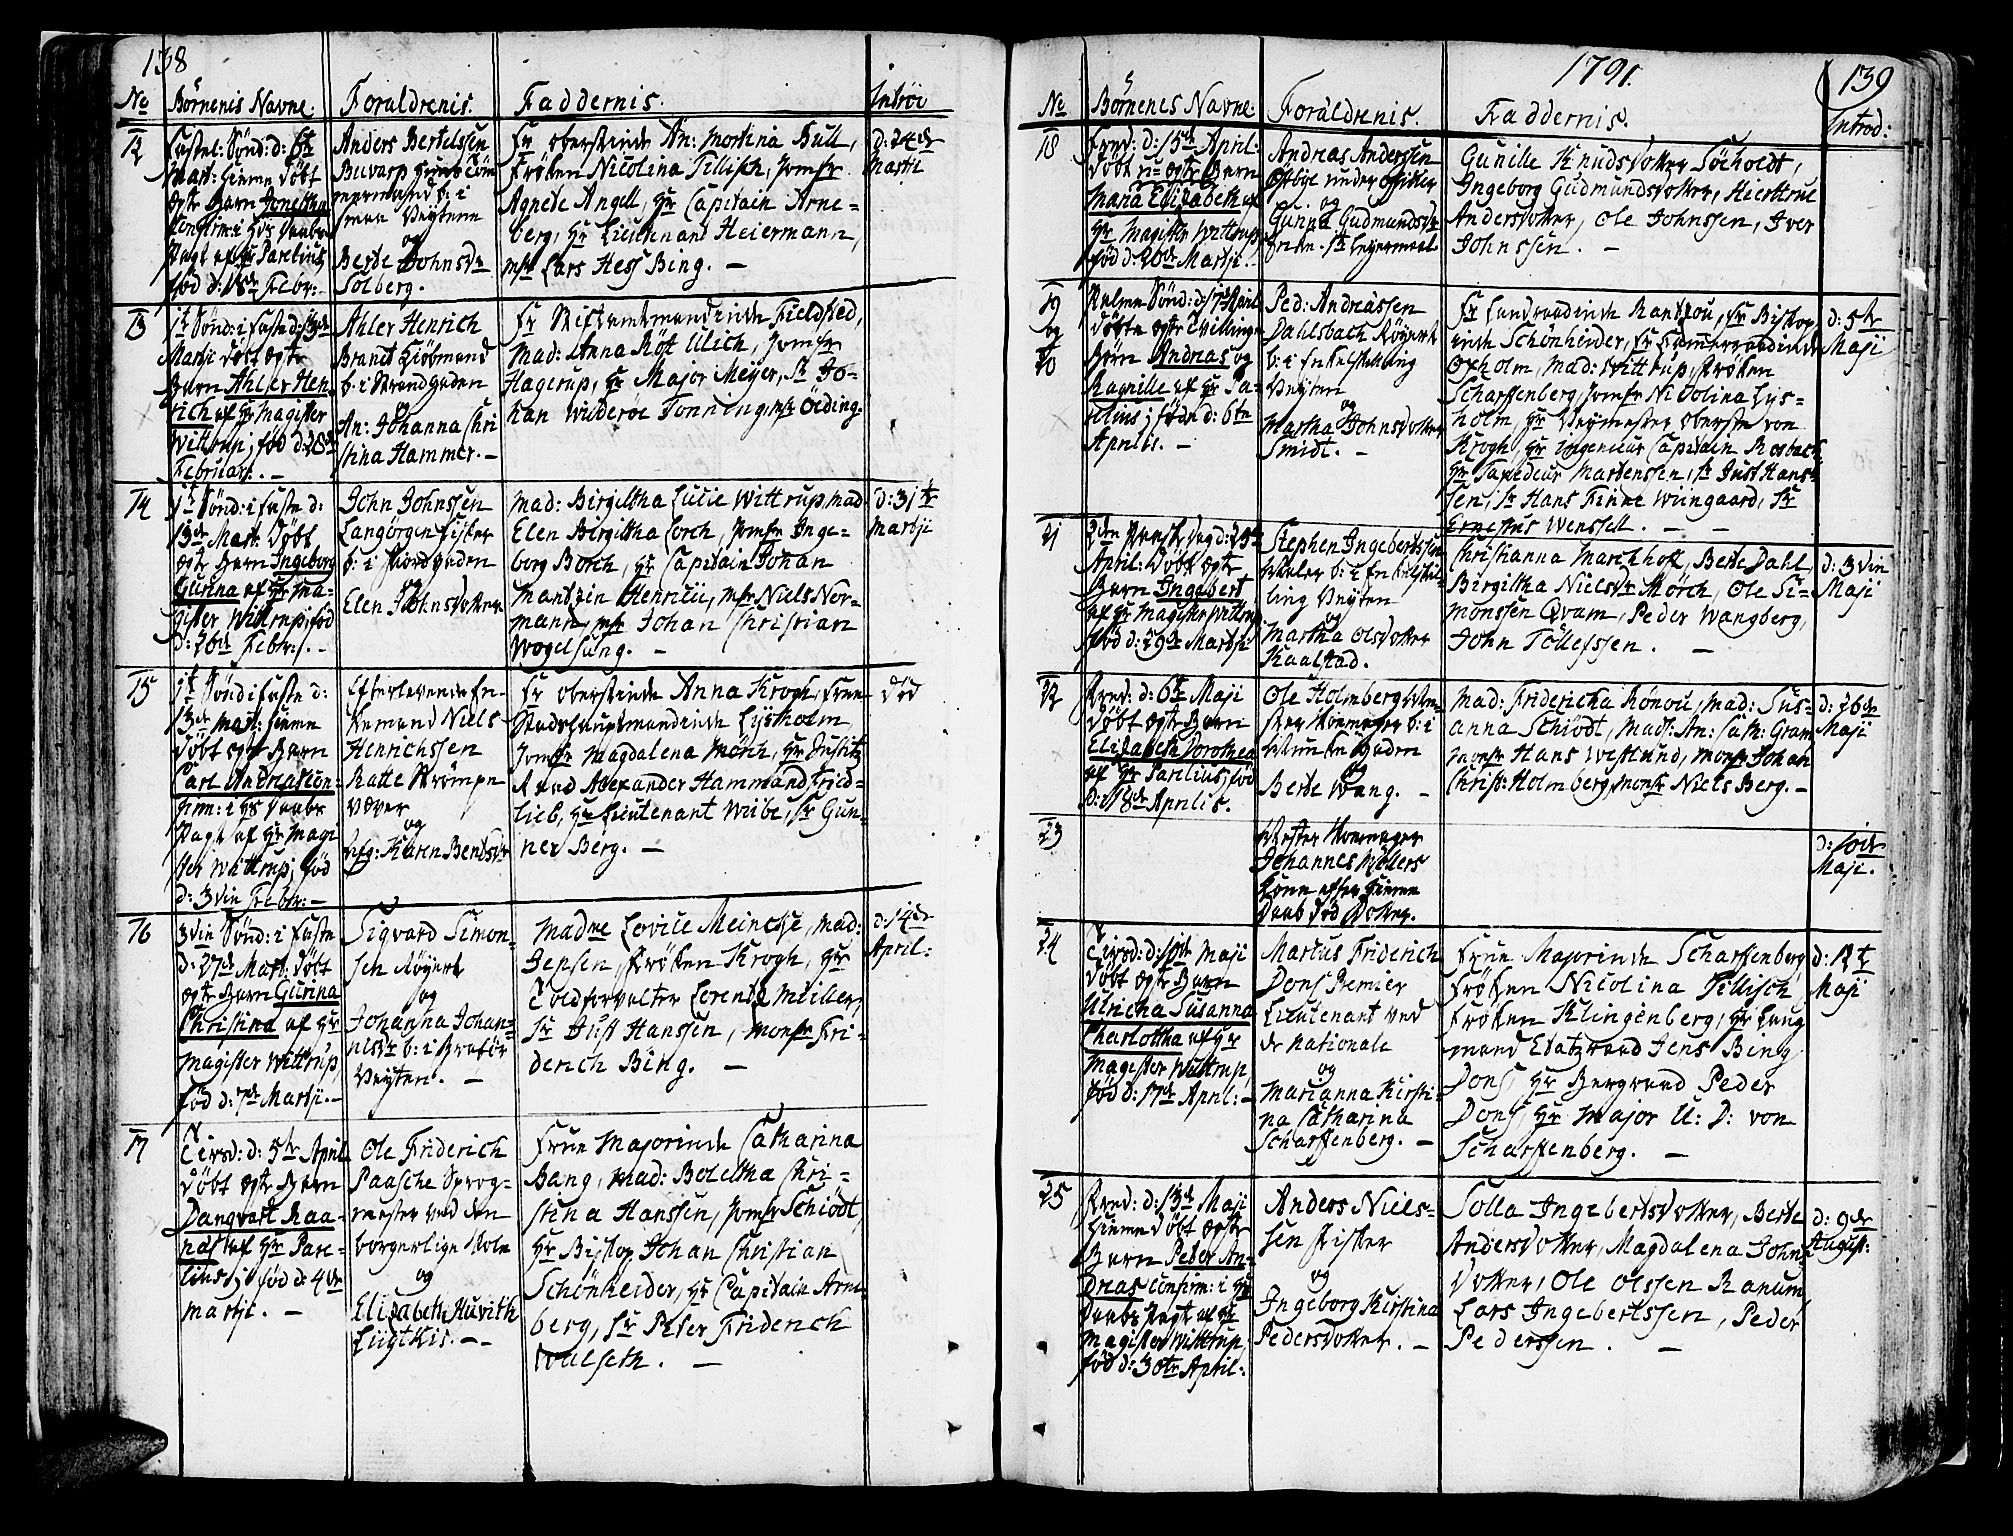 138
No
Börnenis Navne.
Forældrenis.
Faddernis.
Introd
12
Fastel: Sønd: d: 6te
Mart: hieme døbt
ægte Barn Jonetha
Confirm: i Hds Daabs
Pagt af Hr Parelius,
fød d: 18de Febr: –
Anders Bertelssen
Buvarp
nermand b: i
Veyten
og
Berte Johnsdr
Solberg.
Fr Oberstinde An: Martina Bull,
Frøken Nicolina Tillisch, Jomfr
Agnete Angell, Hr Capitain Arne=
berg, Hr Lieutenant Heiermann,
Msr Lars Hess Bing. –
d: 24de
Martii
13
1te Sønd: i Faste d: 13de
Martii døbt ægte
Barn Ahler Hen
rich af Hr Magister
Wittrup; fød d: 28de
Februarii. –
Ahler Henrich
Brandt Kiøbmand
b: i Strandgaden
og
An: Johanna Chri
stina Hammer. –
Fr Stiftamtmandinde Fieldsted,
Mad: Anna Röt Ulich, Jomfr
Hagerup, Hr Major Meyer, Sr Jo=
han Widerøe Tonning, Msr Oiding.
14
1te Sønd: i Faste d:
13de Mart: døbt
ægte Barn Ingeborg
Gurina af Hr Ma=
gister Wittrup; fød
d: 26de Febr:. –
John Johnssen
Langørgen Fisker
b: i Fiordgaden
og
Elen Johnsdotter
Mad: Birgiltha Lucie Wittrup, Mad:
Elen Birgiltha Lorch, Jomfr Inge=
borg Borch, Hr Capitain Johan
Mantzin Henrici, Msr Niels Nor=
mann, Msr Johan Christian
Wogelsang. –
d: 31te
Martii
15
1te Sønd: i Faste d:
13de Mart: hieme
døbt ægte Barn
Carl Andreas Con=
firm: i Hs Daabs
Pagt af Hr Magi
ster Wittrup; fød
d: 3die Febr: –
Efterlevende En=
kemand Niels
Henrichssen
Ratte Strømpe
væver
og
afg: Karen Bendsdr
Fr Oberstinde Anna Krogh, Frue
Stadshauptmandinde Lysholm
Jomfr Magdalena Mörch, Hr Justitz
Raad Alexander Hammond Fried=
lieb, Hr Lieutenant Wibe, Sr Gun=
ner Berg. –
død
16
3die Sønd: i Faste
d: 27de Mart: døbt
ægte Barn Gurina
Christina af Hr
Magister Wittrup,
fød d: 7de Martii. –
Sigvard Simon=
sen Røyert
og
Johanna Johan=
nesdr b: i Brøfør
Veyten. –
Madme Lovise Meincke, Mad:
Jepsen, Frøken Krogh, Hr
Toldforvalter Lorentz Müller,
Sr Just Hanssen, Monsr Fri=
derich Bing. –
d: 14de
April:
17
Tiirsd: d: 5te April
døbt ægte Barn
Danqvart Raa=
nas af Hr Pare=
lius; fød d: 4de
Martii. –
Ole Friderich
Paasche Sprog=
mester ved den
borgerlige Skole
og
Elisabeth Huvith
Lügtkis. –
Frue Majorinde Catharina
Bang, Mad: Boleltha Chri=
stina Hanssen, Jomfr Schiödt,
Hr Biskop Johan Christian
Schönheider, Hr Capitain Arne
berg, Sr Peter Friderich
Walseth. –
1791.
139
No
Börnenes Navne.
Forældrenis.
Faddernis.
Introd:
18
Fred: d: 15de April:
døbt u=ægte Barn
Maria Elisabeth af
Hr Magister Wittrup
fød d: 20de Martii. –
Andreas Andersen
Østbye underofficer
og
Gunna Gudmundsdr
Leyermaal
Gunille Knudsdotter Söholdt,
Ingeborg Gudmundsdotter, Hierttrue
Andersdotter, Ole Johnssen, Iver
Johnssen. –
19
og
20
Palme Sønd: d: 17de April
døbte ægte Tvillinge
Børn Andreas og
Ragnille af Hr Pa=
relius; fødte d: 6te
Aprilis. –
Ped: Andreassen
Dahlsbach Røyert
b: i Enkelstilling
Veyten
og
Martha Johnsdotter
Smidt. –
Fr Landraadinde Randlou, Fr Biskop=
inde Schönheider, Fr Kammerraadinde
Oxholm, Mad: Wittrup, Frøken
Scharffenberg, Jomfr Nicolina Lys=
holm, Hr Veymester Oberste von
Krogh, Hr Ingenieur Capitain Rosbach
Hr Tapedeur Martenssen, Sr Just Hans=
sen, Sr Hans Finne Wiingaard, Sr
Ernestus Wenssell. –
d: 5te
Maji
21
2den Paaske Dag d: 25de
April: døbt ægte
Barn Ingebert
af Hr Magister Wittrup
fød d: 29de Martii
Stephen Ingebertssen
b: i Enkelstil=
ling Veyten
og
Martha Olsdotter
Kaalstad.
Christianna Marckhoff, Berte Dahl,
Birgiltha Nielsdr Mörch, Ole Si=
monssen Qvam, Peder Wangberg,
John Tollefssen. –
d: 3die
Maji
22
Fred: d: 6te Maji
døbt ægte Barn
Elisabeth Dorothea
af Hr Parelius; fød
d: 18de Aprilis.
Ole Holmberg Me=
ster Skomager b: i
Gaden
og
Berte Wang. –
Mad: Fridericha Rönou, Mad: Sus=
anna Schiödt, Mads: An: Cath: Gram
Monsr Hans Westlund, Monsr Johan
Christ: Holmberg, Monsr Niels Berg. –
d: 26de
Maji
23
Mester Skomager
Johannes Möllers
Kone efter hieme
Daab død Dotter.
d: 10de
Maji.
24
Tiirsd: d: 10de Maji
døbt ægte Barn
Ulricha Susanna
Charlottha af Hr
Magister Wittrup,
fød d: 17de April: –
Marius Friderich
Dons Premier
Lieutenant ved
de nationale
og
Marianna Kirsti=
na Catharina
Scharffenberg. –
Frue Majorinde Scharffenberg
Frøken Nicolina Tillisch
Frøken Klingenberg, Hr Laug
mand Etatzraad Jens Bing
Dons, Hr Bergraad Peder
Dons, Hr Major U: D: von
Scharffenberg. –
d: 12te
Maji
25
Fred: d: 13de Maji
hieme døbt ægte
Barn Peder An=
dreas Confirm: i Hs
Daabs Pagt af Hr
Magister Wittrup,
fød d: 30te April.
Anders Niels=
sen Fisker
og
Ingeborg Kirstina
Pedersdotter. –
Solla Ingebertsdotter, Berte
Andersdotter, Magdalena Johns
dotter, Ole Olssen Ranum,
Lars Ingebertssen, Peder
Pederssen. –
d: 9de
August: